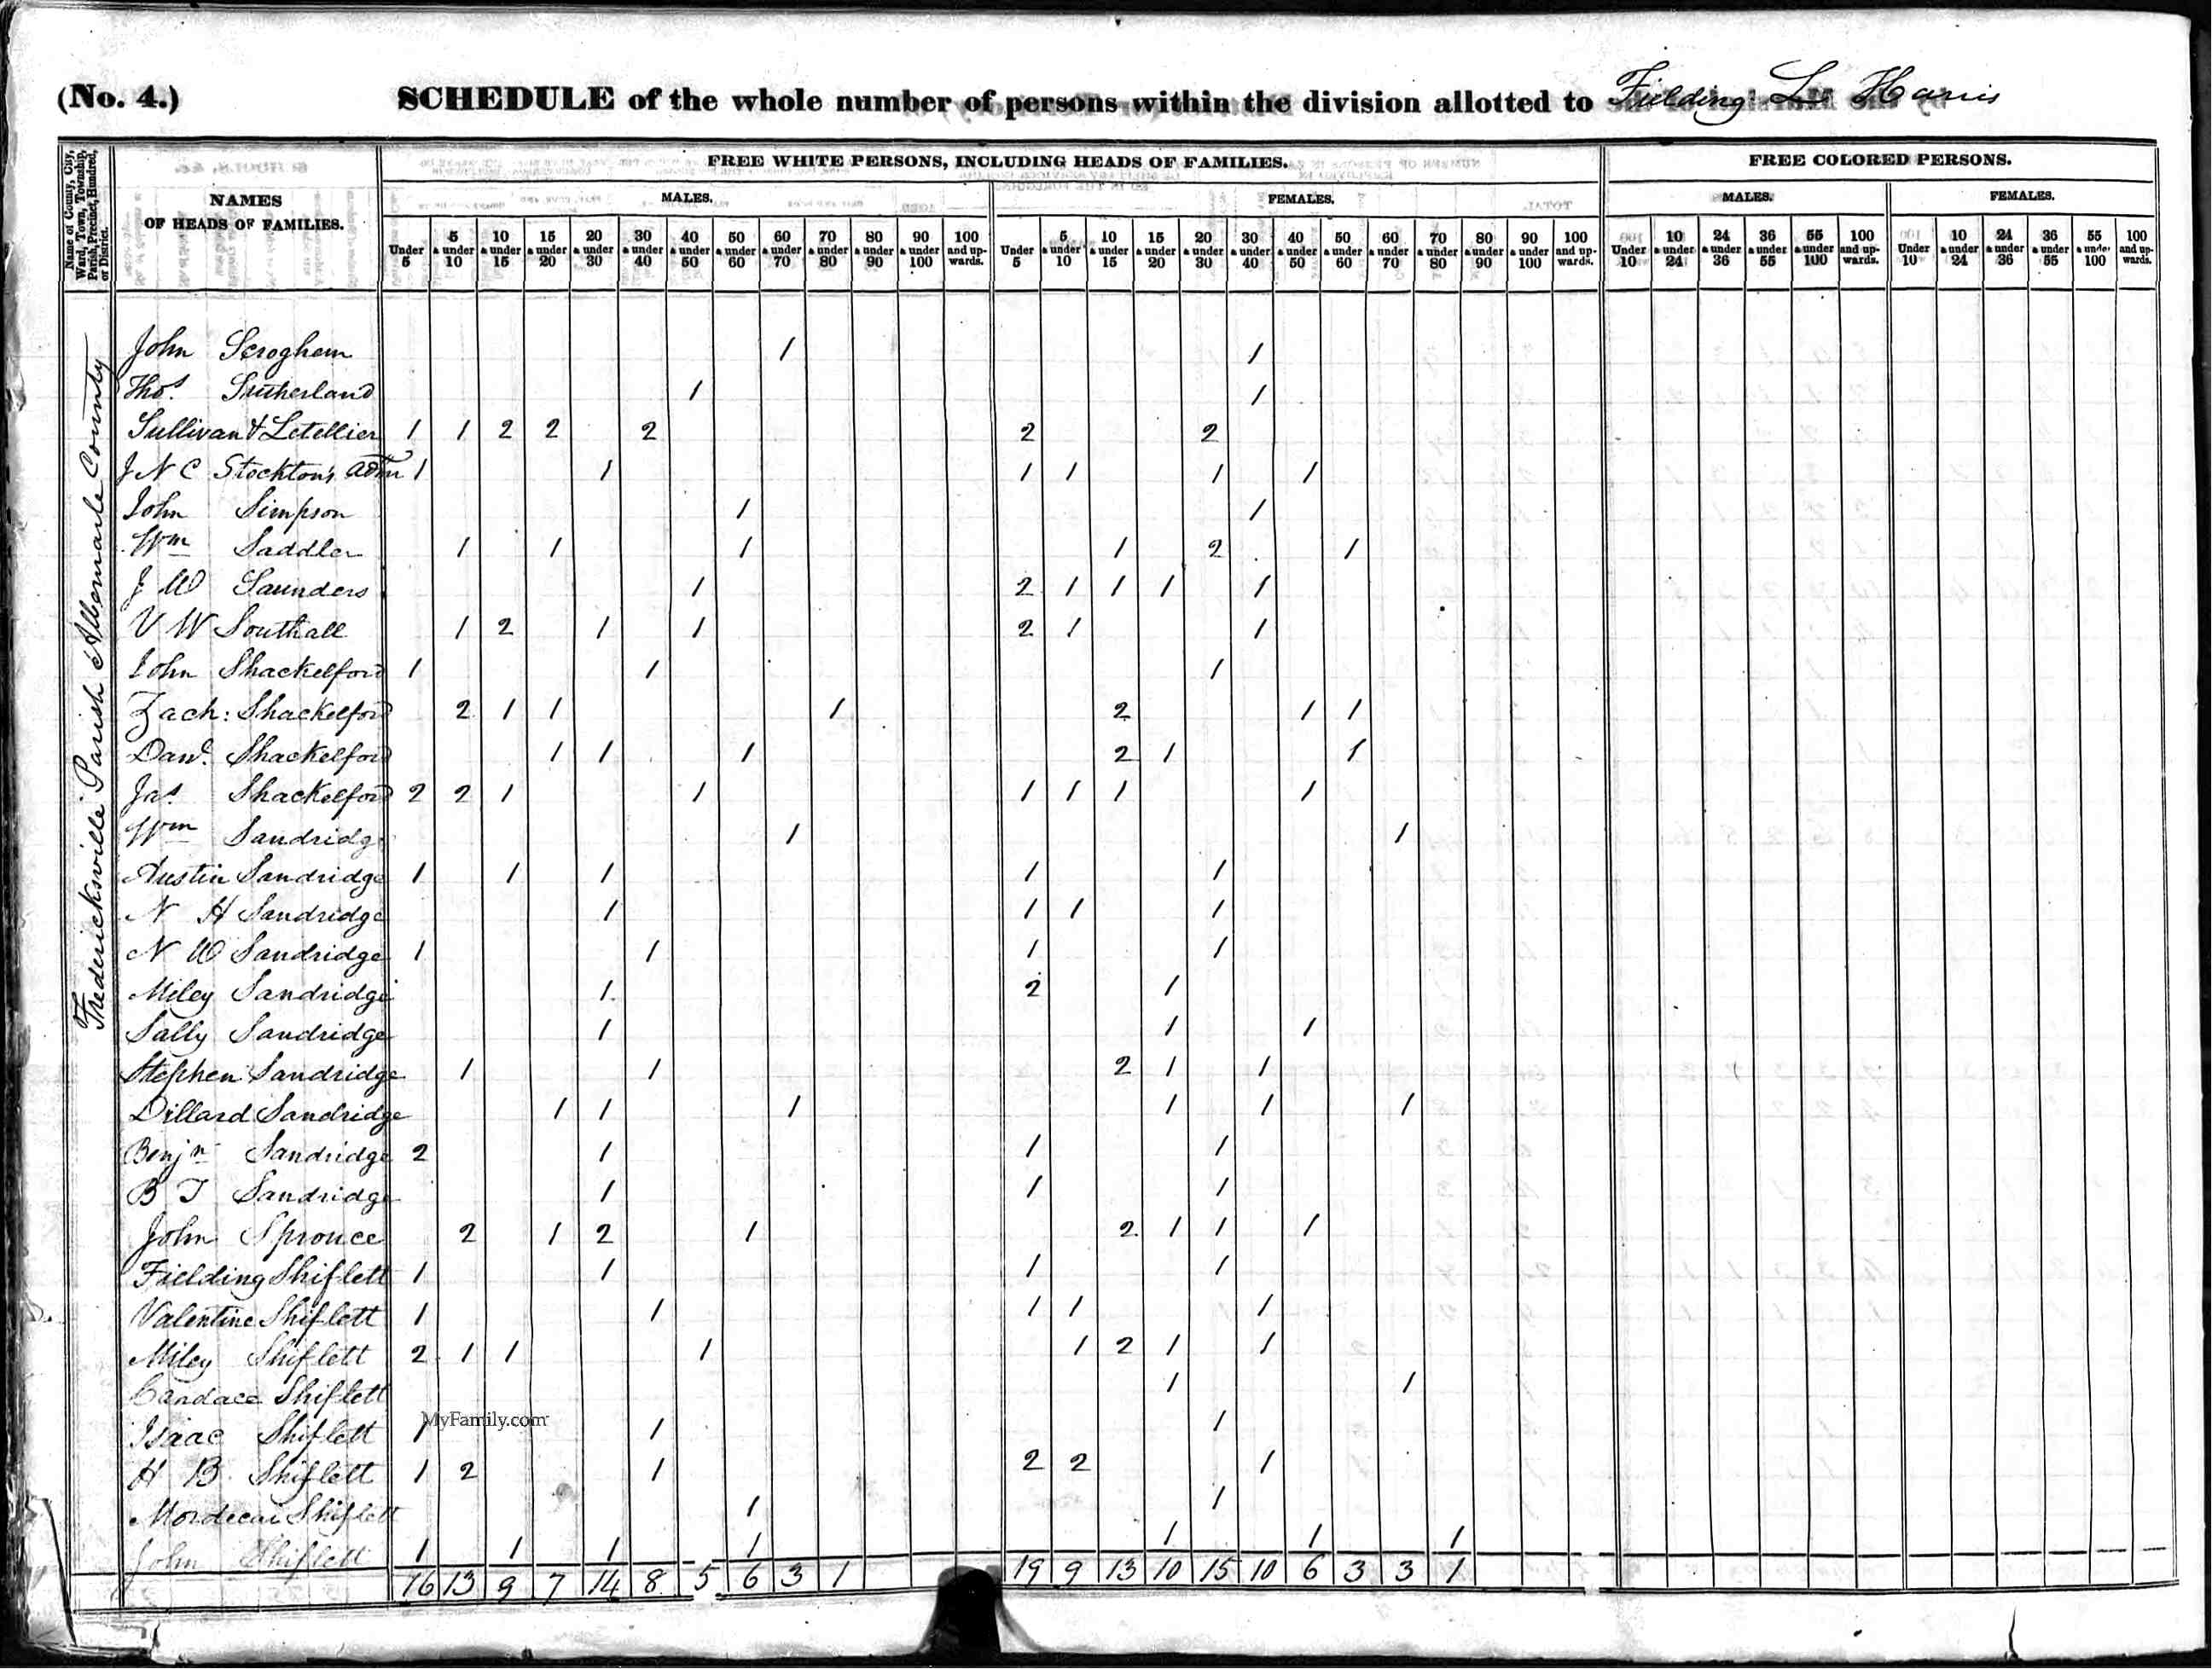 (No. 4.) SCHEDULE of the whole number of persons within the division allotted to Fielding L. Harris
Name of County, City, Ward, Town, Township, Parish, Precinct, Hundred, or District.
NAMES
OF HEADS OF FAMILIES.
FREE WHITE PERSONS, INCLUDING HEADS OF FAMILIES.
FREE COLORED PERSONS.
MALES. FEMALES. MALES. FEMALES.
Under 5 5 & under 10 10 & under 15 15 & under 20 20 & under 30 30 & under 40 40 & under 50 50 & under 60 60 & under 70 70 & under 80 80 & under 90 90 & under 100 100 and upwards. Under 5 5 & under 10 10 & under 15 15 & under 20 20 & under 30 30 & under 40 40 & under 50 50 & under 60 60 & under 70 70 & under 80 80 & under 90 90 & under 100 100 and upwards. Under 10 10 & under 24 24 & under 36 36 & under 55 55 & under 100 100 and upwards. Under 10 10 & under 24 24 & under 36 36 & under 55 55 & under 100 100 and upwards.
Fredericksville Parish Albemarle County
John Scroghem 1 1
Thos. Sutherland 1 1
Sullivan & Letellier 1 1 2 2 2 2 2
J N C Stockton's Adm 1 1 1 1 1 1
John Simpson 1 1
Wm Saddler 1 1 1 1 2 1
J W Saunders 1 2 1 1 1 1
V W Southall 1 2 1 1 2 1 1
John Shackelford 1 1 1
Zach: Shackelford 2 1 1 1 2 1 1
Danl. Shackelford 1 1 1 2 1 1
Jas. Shackelford 2 2 1 1 1 1 1 1
Wm Sandridge 1 1
Austin Sandridge 1 1 1 1 1
N H Sandridge 1 1 1 1
N W Sandridge 1 1 1 1
Miley Sandridge 1 2 1
Sally Sandridge 1 1 1
Stephen Sandridge 1 1 2 1 1
Dillard Sandridge 1 1 1 1 1 1
Benjn Sandridge 2 1 1 1
B T Sandridge 1 1 1
John Sprouce 2 1 2 1 2 1 1 1
Fielding Shiflett 1 1 1 1
Valentine Shiflett 1 1 1 1 1
Miley Shiflett 2 1 1 1 1 2 1 1
Candace Shiflett 1 1
Isaac Shiflett 1 1 1
MyFamily.com
H B Shiflett 1 2 1 2 2 1
Mordecai Shiflett 1 1
John Shiflett 1 1 1 1 1 1 1
16 13 9 7 14 8 5 6 3 1 19 9 13 10 15 10 6 3 3 1